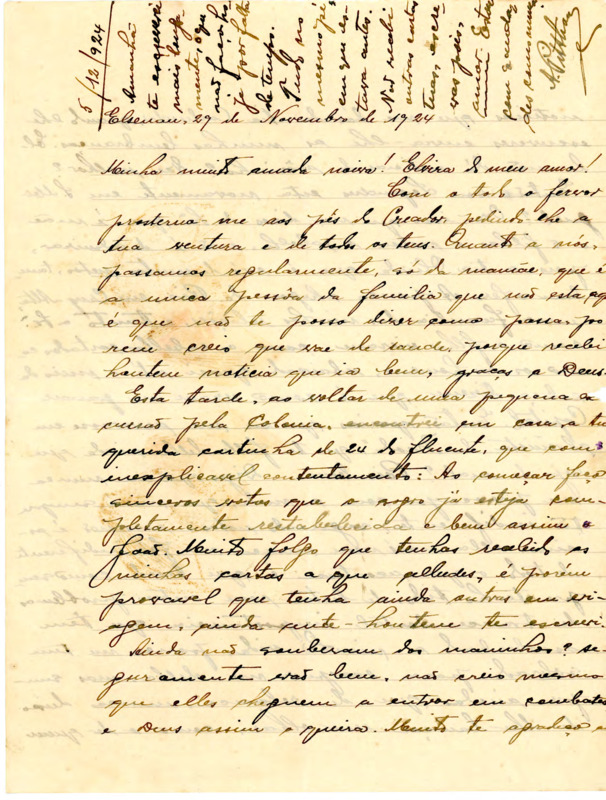 5/12/924
Amanhã
te escreverei
mais longa-
mente, o que
não fiz ho-
je por falta
de tempo.
Tudo no
mesmo pé
em que es-
tava antes.
Não recebi
outras cartas
tuas, escre-
vas pois,
amor.
com saudas
des
Elsenau, 29 de Novembro de 1924
Minha muito amada noiva! Elvira do meu amor!
Com o todo o fervor
prosterno-me aos pés do Creador, pedindo-lhe a
tua ventura e de todos os teus. Quanto a nós,
passamos regularmente, só da mamãe, que é
a unica pessôa da familia que não esta aqui
é que não te posso dizer como passa, po-
rém creio que vae de saude, porque recebi
hontem noticia que ia bem, graças a Deus.
Esta tarde, ao voltar de uma pequena ex
cursão pela Colonia, encontrei em casa, a tua
querida cartinha de 24 do fluente, que com
inexplicavel contentamento: Ao começar faço
sinceros votos que o sogro já esteja com-
pletamente restabelecida e bem assim o
João. Muito folgo que tenhas recebido as
minhas cartas a que alludes, é porém
provavel que tenha ainda outras em vi-
agem, ainda ante-hontem te escrevi.
Ainda não souberam dos maninhos? se-
guramente vão bem, não creio mesmo
que elles cheguem a entrar em combates
e Deus assim o queira. Muito te agradeço a